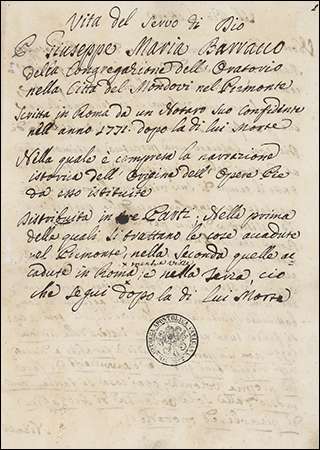 Vita del Servo di Dio
P. Giuseppe Maria Barracco
della Congregazione dell Oratorio
nella Città del Mondovì nel Piemonte
Scritta in Roma da un Notaro suo Confidente
nell' anno 1771. dopo la di lui Morte
Nella quale è compresa la narrazione
istoria dell' Origine dell' Opere Pie
da esso istituite
Distribuita in tre Parti; Nelle prima
delle quali si trattano le cose accadute
nel Piemonte; nella seconda quelle ac
cadute in Roma; e nella terza, ciò
che seguì dopo la di lui Morte